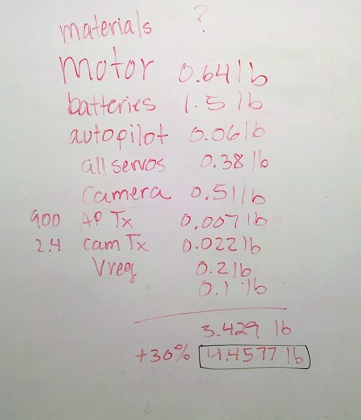 materials ?
motor 0.64 lb
batteries 1.5 lb
autopilot 0.06 lb
all servos 0.38 lb
camera 0.51 lb
900 AP Tx 0.007 lb
2.4 cam Tx 0.022 lb
Vreg 0.2 lb
0.1 lb
3.429 lb
+30% 4.4577 lb